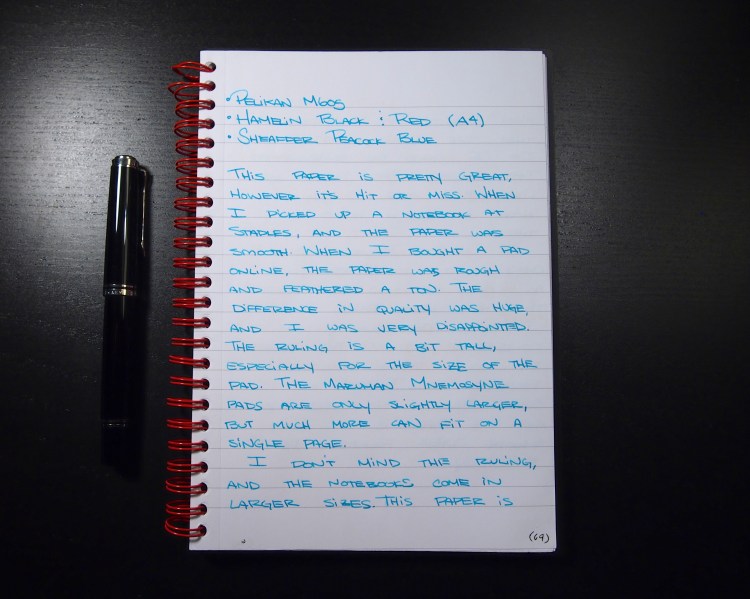 • PELIKAN M605
• HAMELIN BLACK : RED (A4)
• SHEAFFER PEACOCK BLUE
THIS PAPER IS PRETTY GREAT,
HOWEVER IT'S HIT OR MISS. WHEN
I PICKED UP A NOTEBOOK AT
STAPLES, AND THE PAPER WAS
SMOOTH. WHEN I BOUGHT A PAD
ONLINE, THE PAPER WAS ROUGH
AND FEATHERED A TON. THE
DIFFERENCE IN QUALITY WAS HUGE,
AND I WAS VERY DISAPPOINTED.
THE RULING IS A BIT TALL,
ESPECIALLY FOR THE SIZE OF THE
PAD. THE MARUMAN MNEMOSYNE
PADS ARE ONLY SLIGHTLY LARGER,
BUT MUCH MORE CAN FIT ON A
SINGLE PAGE.
I DON'T MIND THE RULING,
AND THE NOTEBOOKS COME IN
LARGER SIZES. THIS PAPER IS
(69)